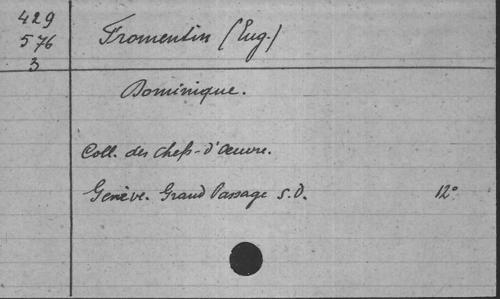 429
576
3
Fromentin (Eug.)
Dominique.
Coll. des Chefs-d'Oeuvre.
Genève. Grand Passage s.d. 12°